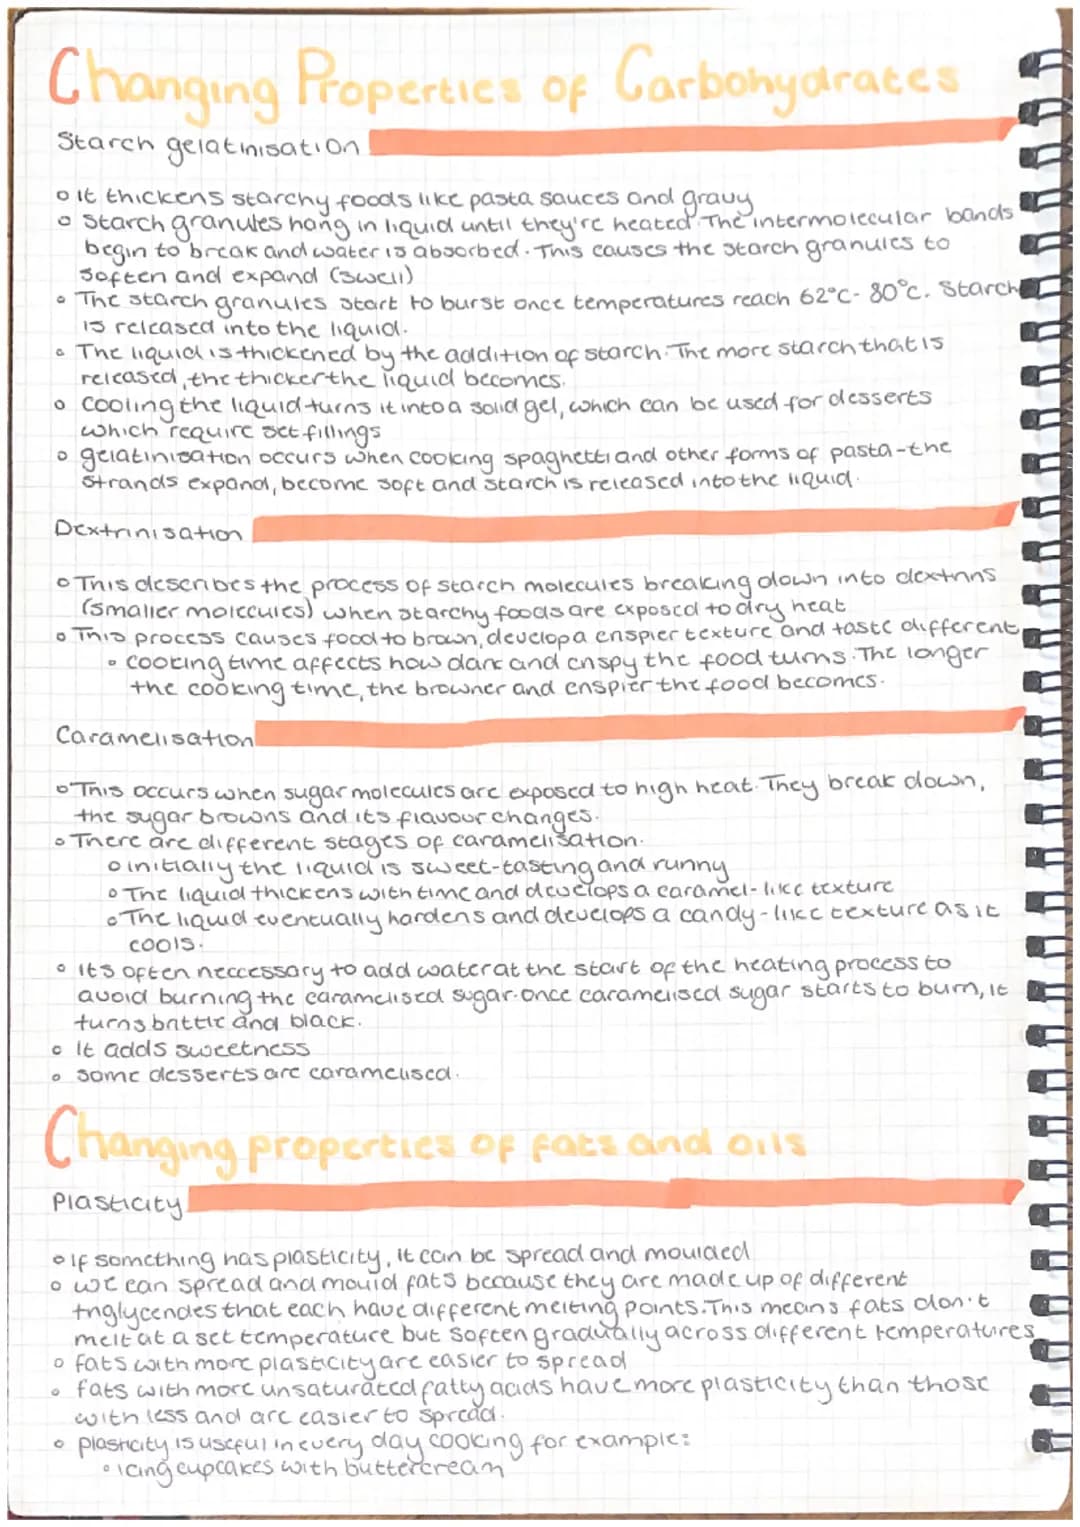 Changing Properties of Carbohydrates
Starch gelatinisation
o It thickens starchy foods like pasta sauces and gravy
o Starch granules hang in liquid until they're heated. The intermolecular bonds
begin to break and water is absorbed. This causes the starch granules to
soften and expand (swell)
o The starch granules start to burst once temperatures reach 62°C - 80°C. Starch
is released into the liquid.
o The liquid is thickened by the addition of starch. The more starch that is
released, the thicker the liquid becomes.
o Cooling the liquid turns it into a solid gel, which can be used for desserts
which require set fillings
o gelatinisation occurs when cooking spaghetti and other forms of pasta - the
strands expand, become soft and starch is released into the liquid.
Dextrinisation
o This describes the process of starch molecules breaking down into dextrins
(smaller molecules) when starchy foods are exposed to dry heat
o This process causes food to brown, develop a crispier texture and taste different
o cooking time affects how dark and crispy the food turns. The longer
the cooking time, the browner and crispier the food becomes.
Caramelisation
o This occurs when sugar molecules are exposed to high heat. They break down,
the sugar browns and its flavour changes.
o There are different stages of caramelisation.
o initially the liquid is sweet-tasting and runny
o The liquid thickens with time and develops a caramel-like texture
o The liquid eventually hardens and develops a candy-like texture as it
cools.
o Its often neccessary to add water at the start of the heating process to
avoid burning the caramelised sugar. once caramelised sugar starts to burn, it
turns brittle and black.
o It adds sweetness
o some desserts are caramelised.
Changing properties of fats and oils
Plasticity
o If something has plasticity, it can be spread and moulded
o we can spread and mould fats because they are made up of different
triglycerides that each have different melting points. This means fats don't
melt at a set temperature but soften gradually across different temperatures
o fats with more plasticity are easier to spread
o fats with more unsaturated fatty acids have more plasticity than those
with less and are easier to spread.
o plasticity is useful in every day cooking for example:
o icing cupcakes with buttercream